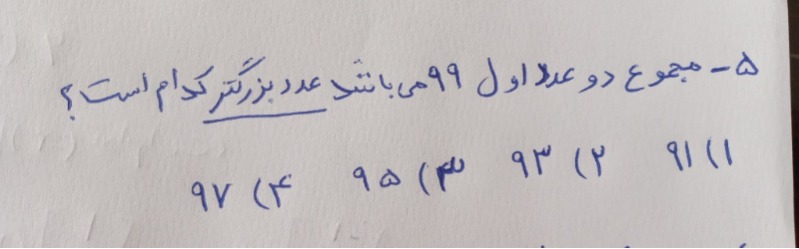 ۵- مجموع دو عدد اول ۹۹ می باشد عدد بزرگتر کدام است؟
۱) ۹۱ ۲) ۹۳ ۳) ۹۵ ۴) ۹۷